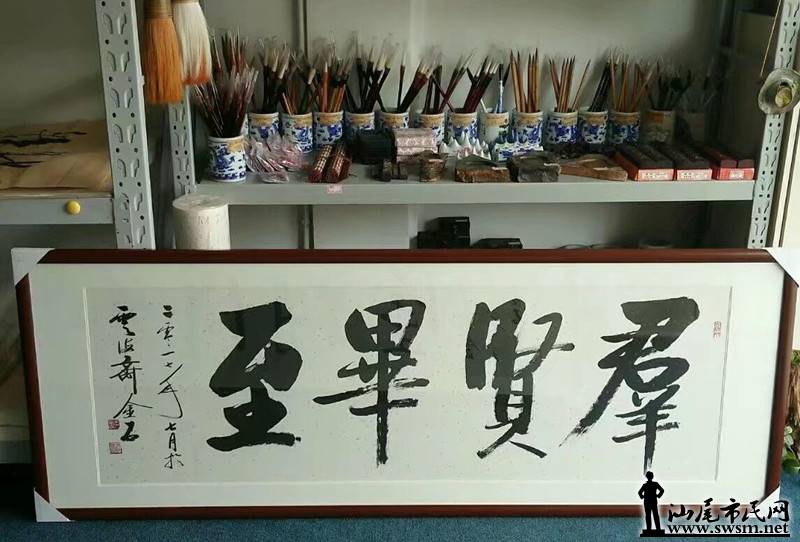 羣賢畢至
二零一七年七月於
雲海齋金石
汕尾市民网
www.swsm.net